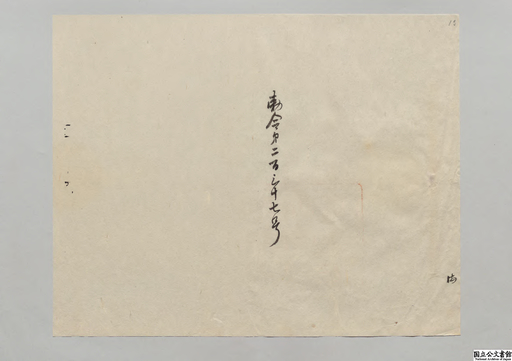 勅令第二百三十七号
国立公文書館
National Archives of Japan